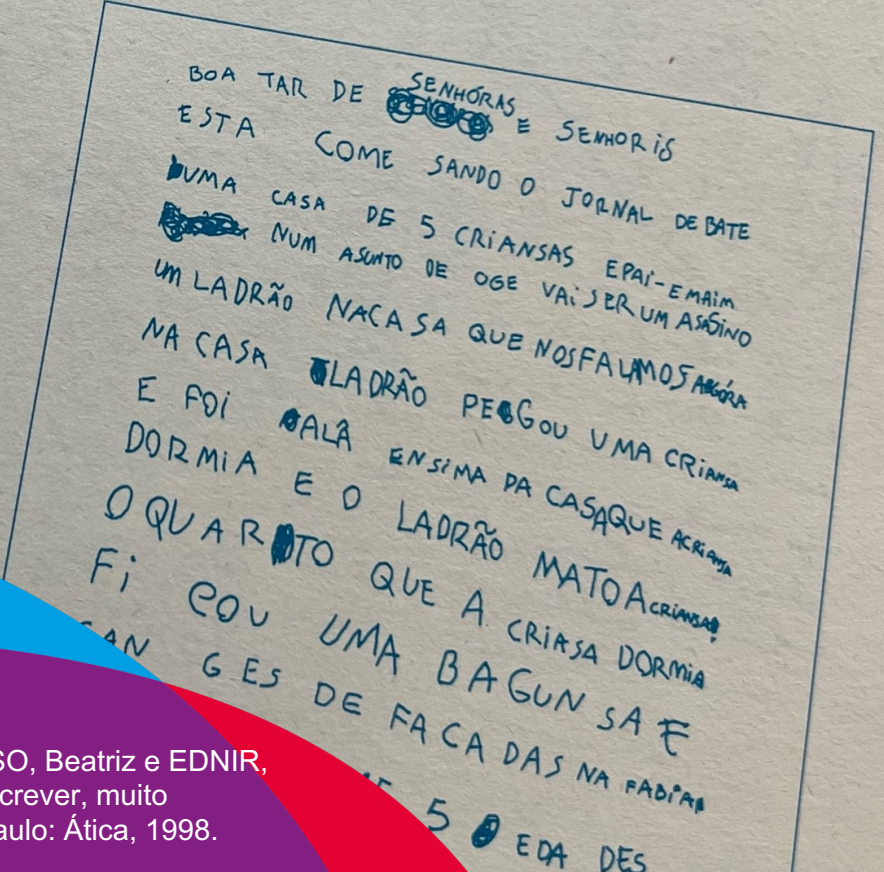 BOA TAR DE SENHÓRAS E SENHORiS
ESTA COME SANDO O JORNAL DEBATE
UMA CASA DE 5 CRiANSAS EPAi-EMAiM
NUM ASUNTO DE OGE VAi SER UM ASASiNO
UM LADRÃO NACASA QUE NOSFALAMOS AGÓRA
NA CASA LADRÃO PEGOU UMA CRiANSA
E FOi ALÂ ENSiMA DA CASAQUE ACRiANSA
DORMiA E O LADRÃO MATOACRiANSA
OQUARTO QUE A CRiASA DORMiA
Fi COU UMA BAGUNSA E
SAN GES DE FACADAS NA
5 EDA DES
SO, Beatriz e EDNIR,
crever, muito
aulo: Ática, 1998.